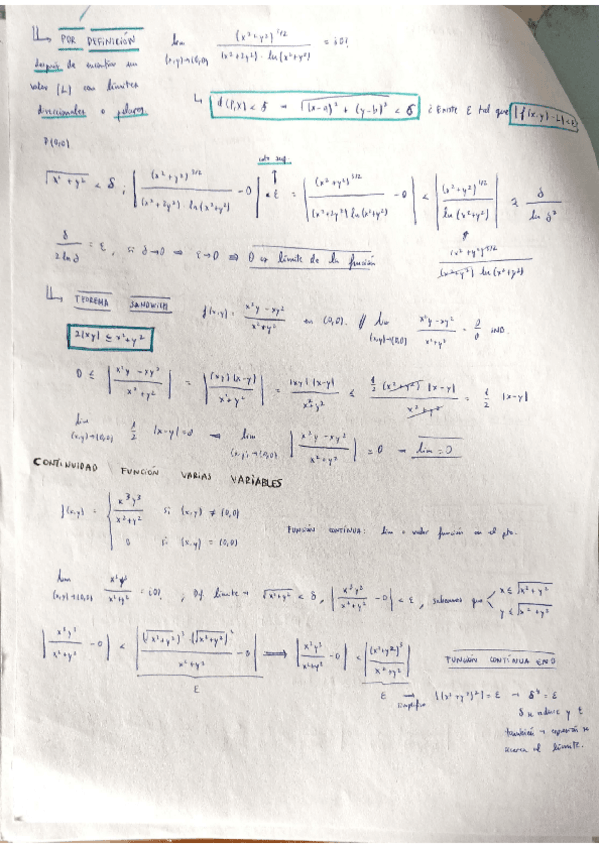 POR DEFINICIÓN lim (x,y)→(0,0) (x²+y²)^3/2 / (x²+2y²)·ln(x²+y²) = ¿0?
después de encontrar un
valor (L) con límites
direccionales o polares
↳ d(P,X) < δ → √(x-a)²+(y-b)² < δ ¿Existe ε tal que |f(x,y)-L|<ε
P(0,0)
cota sup.
√x²+y² < δ ; |(x²+y²)^3/2 / (x²+2y²)·ln(x²+y²) - 0| < ε = |(x²+y²)^3/2 / (x²+2y²) ln(x²+y²) - 0| < |(x²+y²)^1/2 / ln(x²+y²)| δ / ln δ²
(x²+y²)^3/2 / (x²+y²) ln(x²+y²)
δ / 2 ln δ = ε, si δ→0 ⇒ ε→0 ⇒ 0 es límite de la función
TEOREMA SANDWICH f(x,y)= x²y-xy² / x²+y² en (0,0). // lim (x,y)→(0,0) x²y-xy² / x²+y² = 0/0 IND.
2|xy| ≤ x²+y²
0 ≤ |x²y-xy² / x²+y²| = |(xy)(x-y) / x²+y²| = |xy| |x-y| / x²+y² ≤ 1/2 (x²+y²) |x-y| / x²+y² = 1/2 |x-y|
lim (x,y)→(0,0) 1/2 |x-y| = 0 → lim (x,y)→(0,0) |x²y-xy² / x²+y²| = 0 → lim = 0
CONTINUIDAD FUNCIÓN VARIAS VARIABLES
f(x,y) = { x³y³ / x²+y² si (x,y) ≠ (0,0)
0 si (x,y) = (0,0)
FUNCIÓN CONTINUA: lim = valor función en el pto.
lim (x,y)→(0,0) x³y³ / x²+y² = ¿0?, ; Def. límite → √x²+y² < δ, |x³y³ / x²+y² - 0| < ε, sabemos que x ≤ √x²+y²
y ≤ √x²+y²
|x³y³ / x²+y² - 0| < |(√x²+y²)³·(√x²+y²)³ / x²+y² - 0| ⟹ |x³y³ / x²+y² - 0| < |(x²+y²)³ / x²+y²| FUNCIÓN CONTINUA EN 0
ε
ε → Simplifico |(x²+y²)²| = ε → δ⁴ = ε
δ se reduce y ε
también → expresión se
acerca al límite.